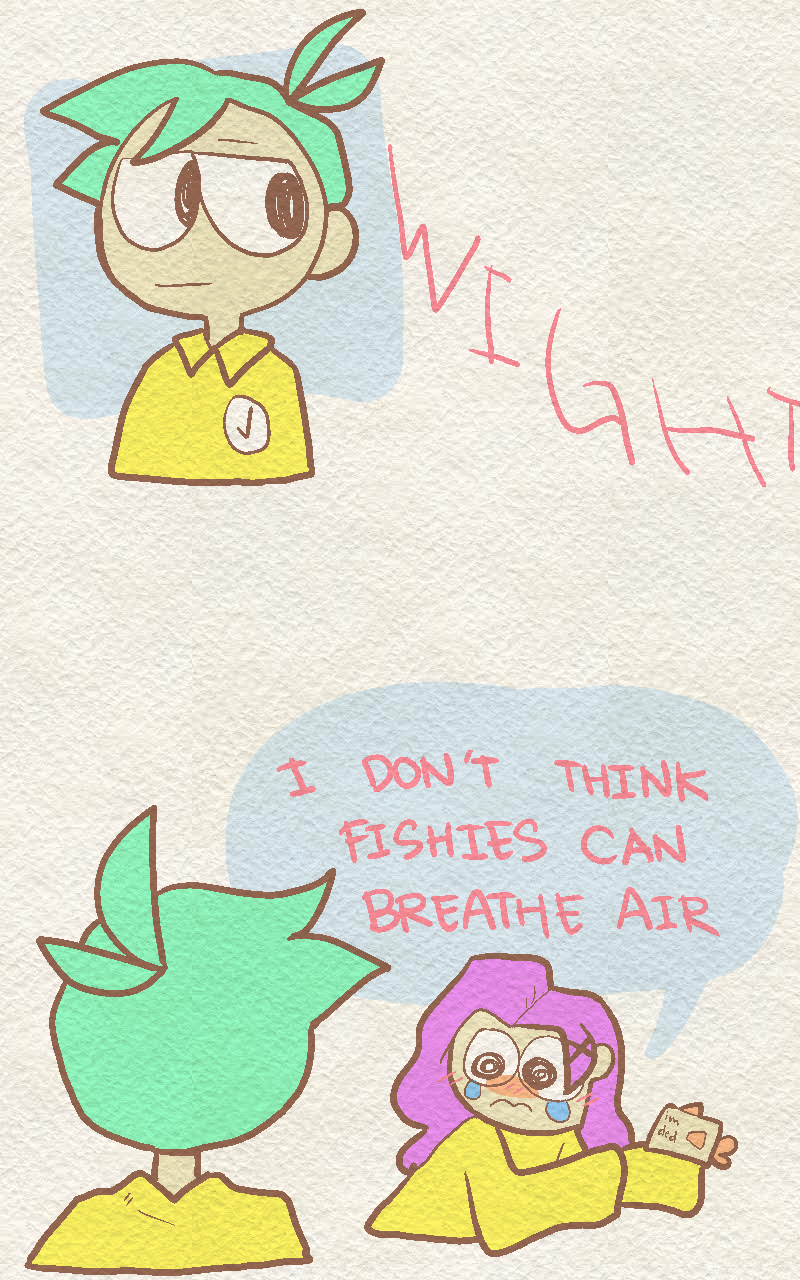 WIGHT
I DON'T THINK
FISHIES CAN
BREATHE AIR
im
ded